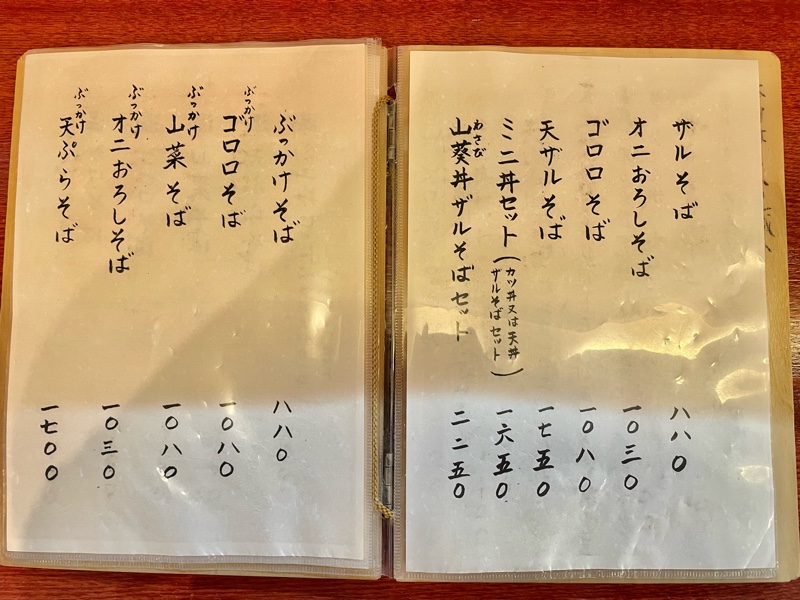 ザルそば 八八〇
オニおろしそば 一〇三〇
ゴロロそば 一〇八〇
天ザルそば 一七五〇
ミニ丼セット(カツ丼又は天丼 ザルそばセット) 一六五〇
山葵丼ザルそばセット 二二五〇
わさび
ぶっかけそば 八八〇
ぶっかけ
ゴロロそば 一〇八〇
ぶっかけ
山菜そば 一〇八〇
ぶっかけ
オニおろしそば 一〇三〇
ぶっかけ
天ぷらそば 一七〇〇